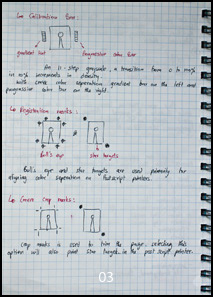 ↳ Calibration bar:
gradient bar
progressive color bar
An 11-step grayscale, a transition from 0 to 100%
in 10% increments in density
both cmyk color separation, gradient bar on the left and
progressive color bar on the right.
↳ Registration marks:
Bull's eye
star targets
Bull's eye and star targets are used primarily for
aligning color separation in Postscript printers.
↳ Corner crop marks:
crop marks is used to trim the page. selecting this
option will also print star targets in the post script printer.
03